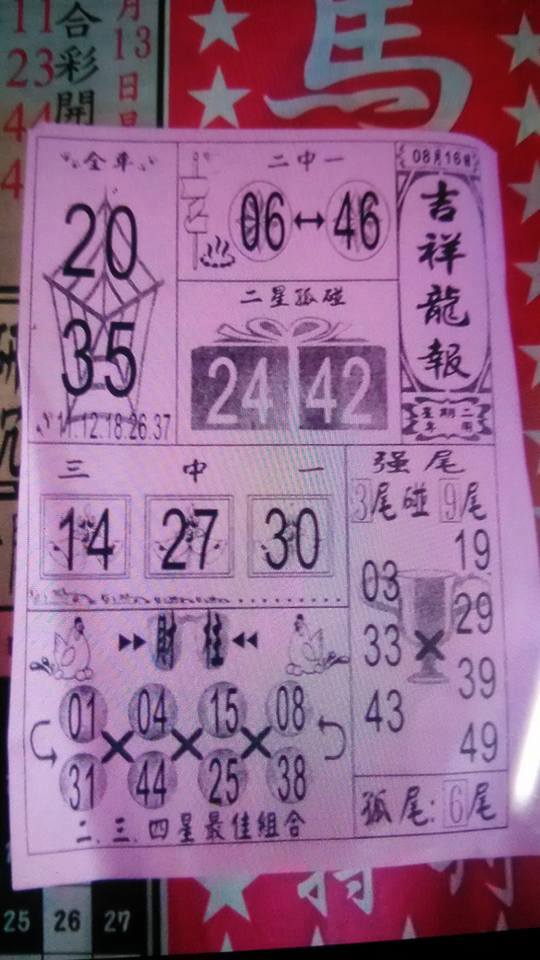 11
23
合彩開
月13日
馬
全車
20
35
11.12.18.26.37
二中一
06↔46
二星孤碰
24 42
08月16日
吉祥龍報
星期二
三中一
14 27 30
强尾
3尾碰9尾
03
33
43
×
19
29
39
49
財柱
01 04 15 08
× × ×
31 44 25 38
二.三.四星最佳組合
孤尾:6尾
25 26 27